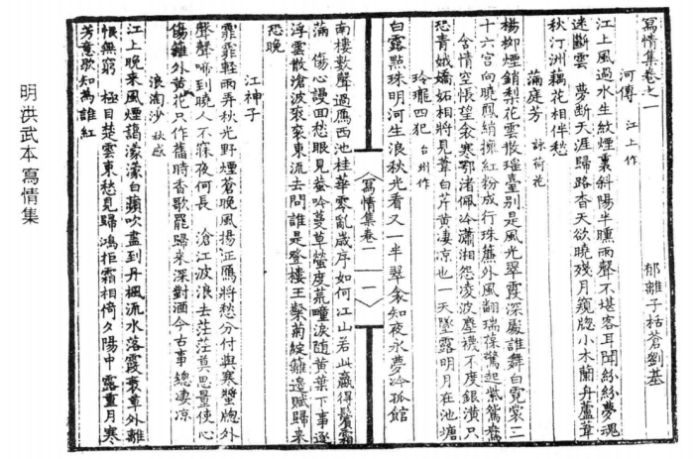 寫情集卷之一
郁離子括蒼劉基
河傳 江上作
江上風過水生紋煙裏斜陽半曛雨聲不堪客耳聞絲絲夢魂
迷斷雲 夢斷天涯歸路杳天欲曉殘月窺牕小木蘭丹蘆葦
秋汀洲藕花相伴愁
滿庭芳 詠荷花
楊柳煙銷梨花雲散瑤臺別是風光翠霞深處誰舞白霓裳二
十六宮向曉鳳綃擁紅粉成行珠簾外風翻瑞葆驚起紫鴛鴦
含情空悵望金寒鄂渚佩冷瀟湘怨凌波塵襪不度銀潢只
恐青娥嬌妬相將見葦白芹黃淒涼也一天墜露明月在池塘
玲瓏四犯 台州作
白露點珠明河生浪秋光看又一半翠衾知夜永夢冷孤館
寫情集卷一 一
南樓數聲過鴈西池桂華零亂歲序如何江山若此贏得鬢霜
滿 傷心謾回愁眼見蛩吟蔓草螢度荒疃淚隨黃葉下事逐
浮雲散滄波衮衮東流去問誰是登樓王粲菊綻籬邊賦歸來
恐晚
江神子
霏霏輕雨弄秋光野煙蒼晚風揚正鴈將愁分付與寒螿牕外
聲聲啼到曉人不寐夜何長 滄江波浪去茫茫莫思量使心
傷籬外黃花只作舊時香歌罷歸來深對酒今古事總淒涼
浪淘沙 秋感
江上晚來風煙靄濛濛白蘋吹盡到丹楓流水落霞衰草外離
恨無窮 極目楚雲東愁見歸鴻拒霜相倚夕陽中 露重月寒
芳意歇知為誰紅
明洪武本寫情集